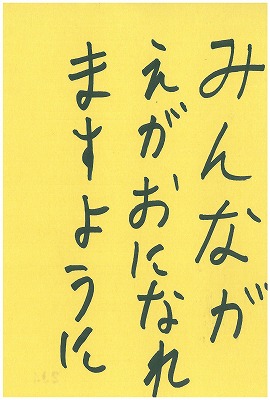 みんなが
えがおになれ
ますように